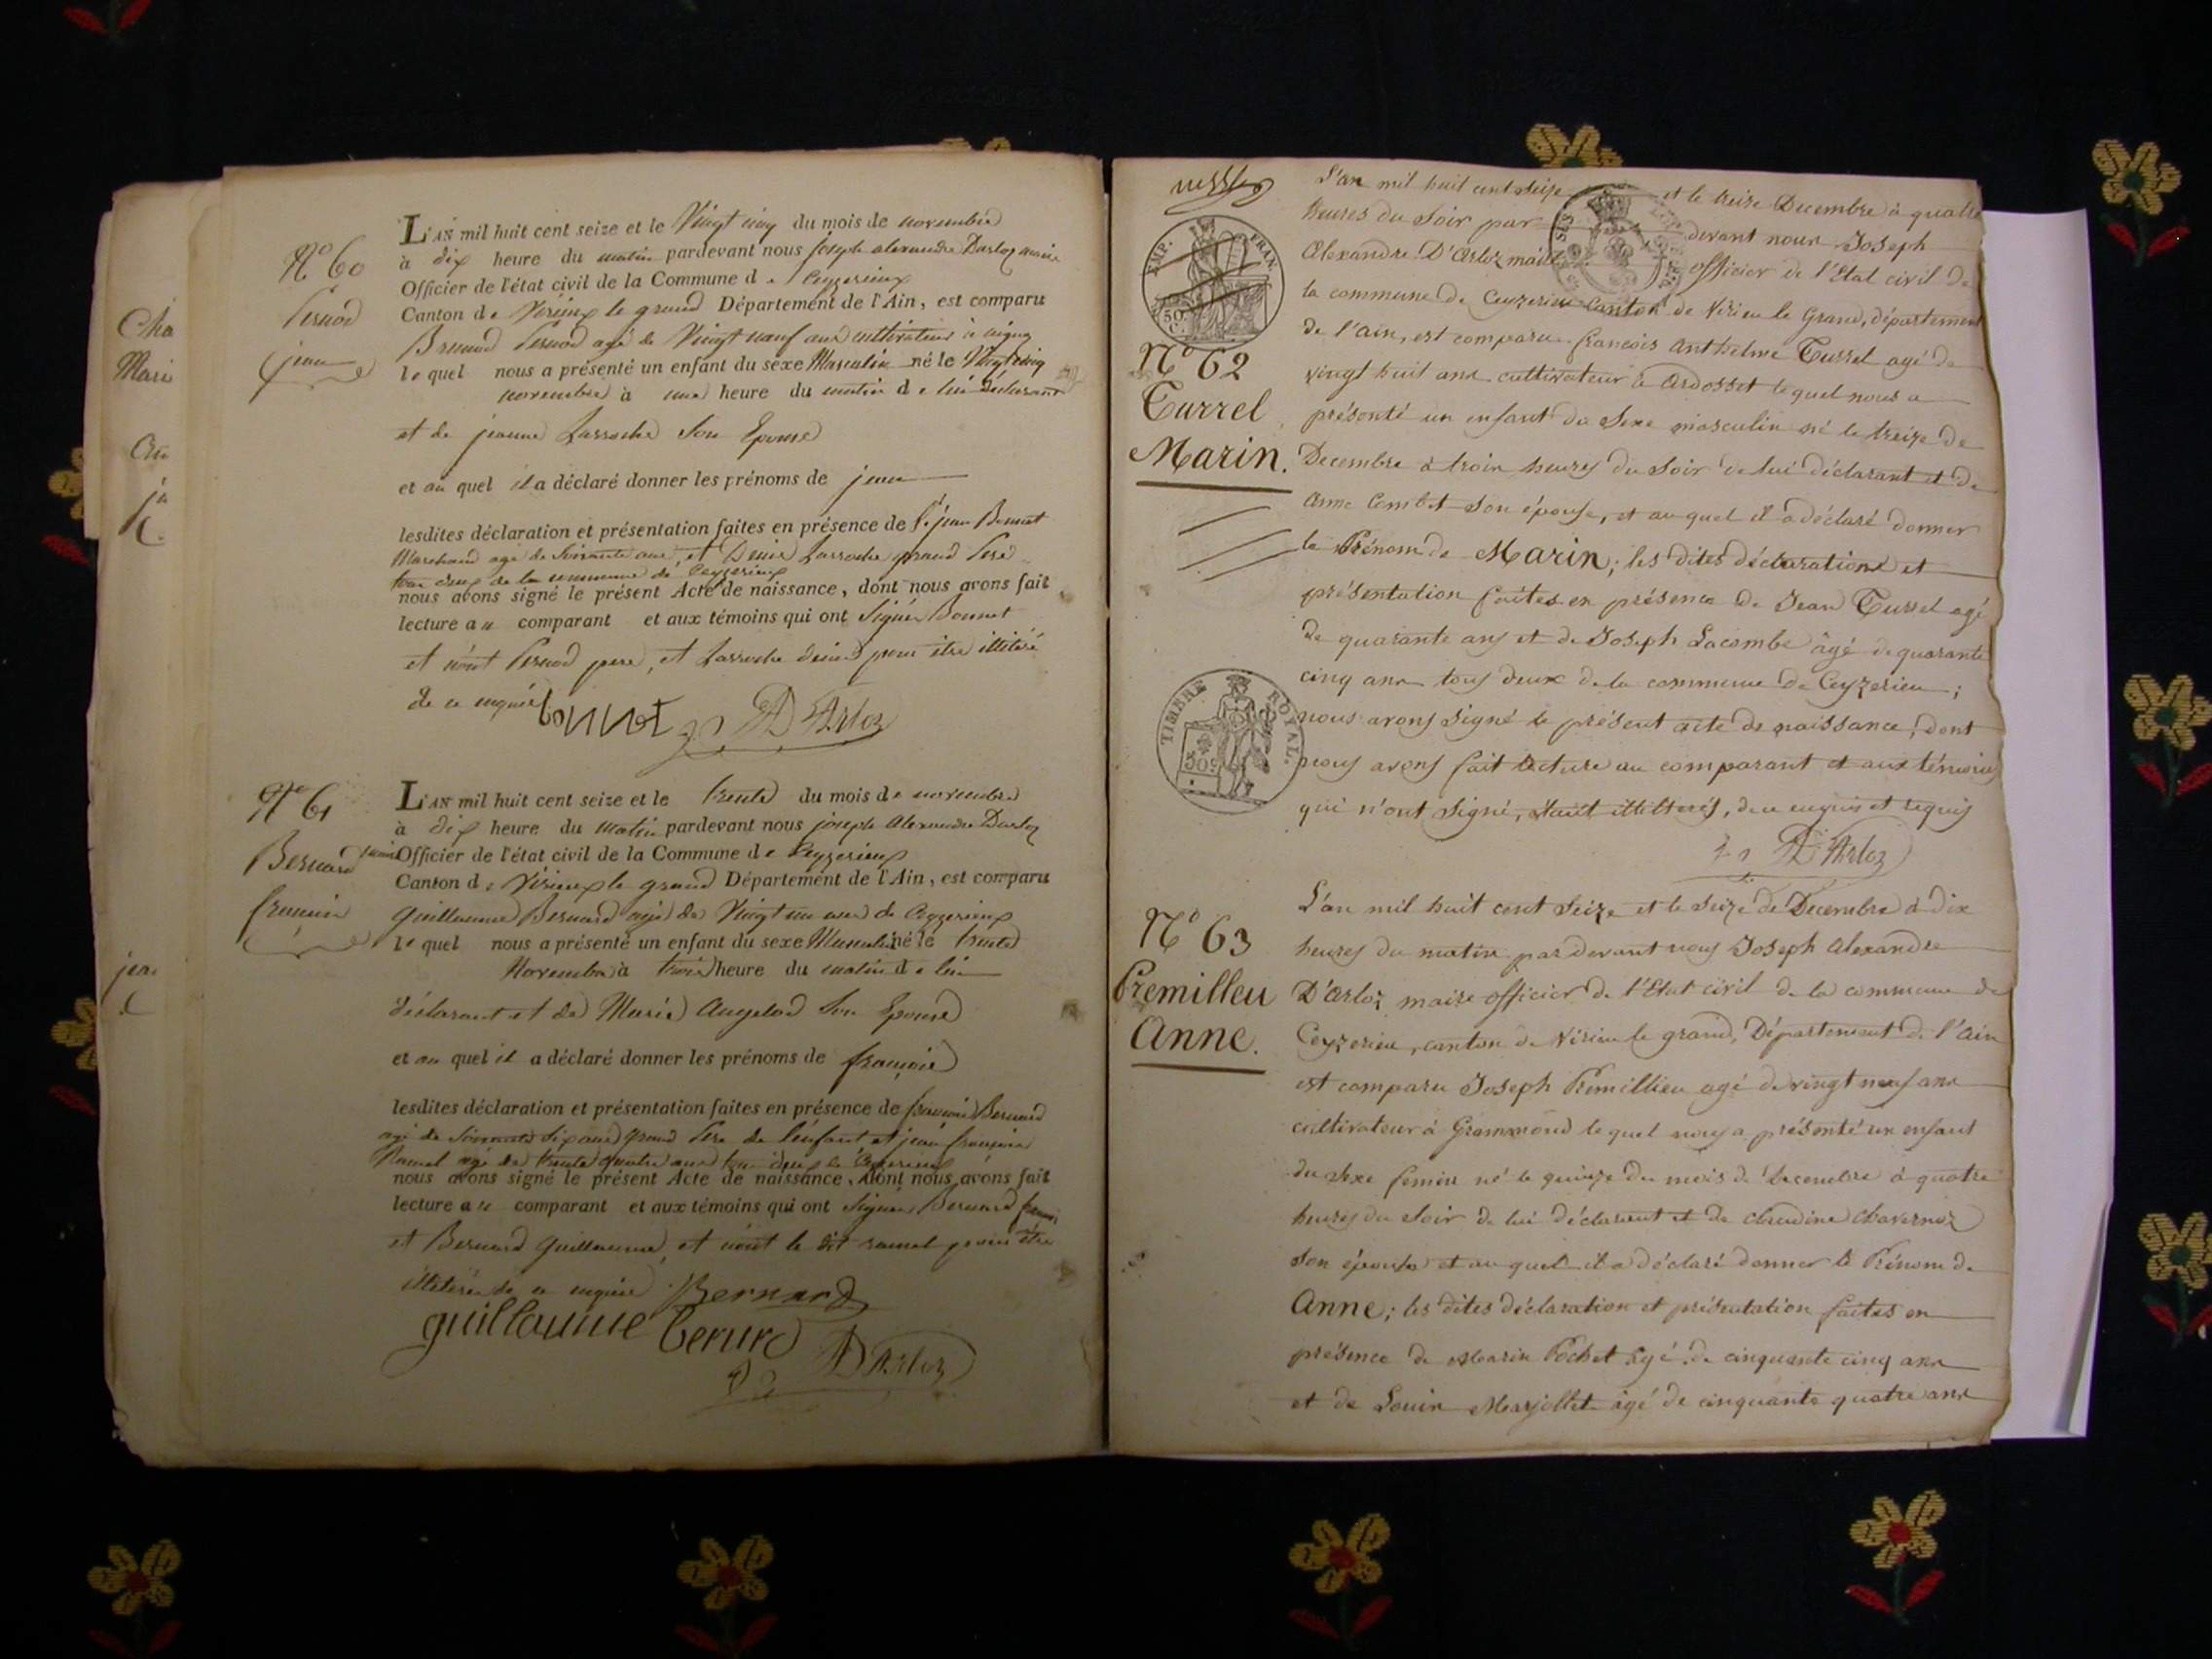 Cha
Marie
jea
N° 60
Pernod
jean
L'AN mil huit cent seize et le Vingt cinq du mois de novembre
à dix heure du matin pardevant nous joseph alexandre Darloz maire
Officier de l'état civil de la Commune de Ceyzerieux
Canton de Virieux le grand Département de l'Ain, est comparu
Pernod agé de Vingt neuf ans cultivateur à
lequel nous a présenté un enfant du sexe Masculin né le Vingt cinq
novembre à une heure du matin de lui declarant
et de jeanne Larroche Son Epouse
et au quel il a déclaré donner les prénoms de jean
lesdites déclaration et présentation faites en présence de jean Bonnet
Marchand agé de Soixante ans, et Denis Larroche grand Pere
tous deux de la commune de Ceyzerieux
nous avons signé le présent Acte de naissance, dont nous avons fait
lecture au comparant et aux témoins qui ont Signé Bonnet
et n'ont Pernod pere, et Larroche denis pour être illitéré
de ce enquis bonnet D'Arloz
N° 61
Bernard
françois
L'AN mil huit cent seize et le trente du mois de novembre
à dix heure du matin pardevant nous joseph Alexandre Darloz
maire Officier de l'état civil de la Commune de Ceyzerieux
Canton de Virieux le grand Département de l'Ain, est comparu
guillaume Bernard agé de Vingt un ans de Ceyzerieux
lequel nous a présenté un enfant du sexe Masculin né le trente
Novembre à trois heure du matin de lui
déclarant et de Marie Son Epouse
et au quel il a déclaré donner les prénoms de françois
lesdites déclaration et présentation faites en présence de françois Bernard
agé de Soixante dix ans grand Pere de l'enfant et jean françois
Ramel agé de trente quatre ans tous deux de Ceyzerieux
nous avons signé le présent Acte de naissance, dont nous avons fait
lecture au comparant et aux témoins qui ont Signés Bernard françois
et Bernard guillaume, et n'ont le dit ramel pour être
illitéré de ce enquis Bernard
guillaume berard
D'Arloz
EMP. FRAN.
50 C.
N° 62
Turrel
Marin.
TIMBRE ROYAL.
50c
L'an mil huit cent seize et le treize Decembre à quatre
heures du soir par devant nous Joseph
Alexandre D'Arloz maire officier de l'Etat civil de
la commune de Ceyzerieu canton de Virieu le Grand, département
de l'ain, est comparu françois Anthelme Turrel agé de
vingt huit ans cultivateur à Ardosset lequel nous a
présenté un enfant du Sexe masculin né le treize de
Decembre à trois heures du soir de lui déclarant et de
Anne Combet son épouse, et auquel il a déclaré donner
le Prénom de Marin; les dites déclarations et
présentation faites en présence de Jean Turrel agé
de quarante ans et de Joseph Lacombe âgé de quarante
cinq ans tous deux de la commune de Ceyzerieu;
nous avons signé le présent acte de naissance, dont
nous avons fait lecture au comparant et aux témoins
qui n'ont signé, étant illitterés, de ce enquis et requis
D'Arloz
N° 63
Premilleu
Anne.
L'an mil huit cent seize et le seize de Decembre à dix
heures du matin par devant nous Joseph Alexandre
D'Arloz maire officier de l'Etat civil de la commune de
Ceyzerieu, canton de Virieu le grand, Département de l'Ain
est comparu Joseph Premillieu agé de vingt neuf ans
cultivateur à Grammond lequel nous a présenté un enfant
du sexe feminin né le quinze du mois de Decembre à quatre
heures du soir de lui déclarant et de claudine Chavernoz
son épouse et auquel il a déclaré donner le Prénom de
Anne; les dites déclaration et présentation faites en
présence de Marin Pochet agé de cinquante cinq ans
et de Louis Marjollet agé de cinquante quatre ans